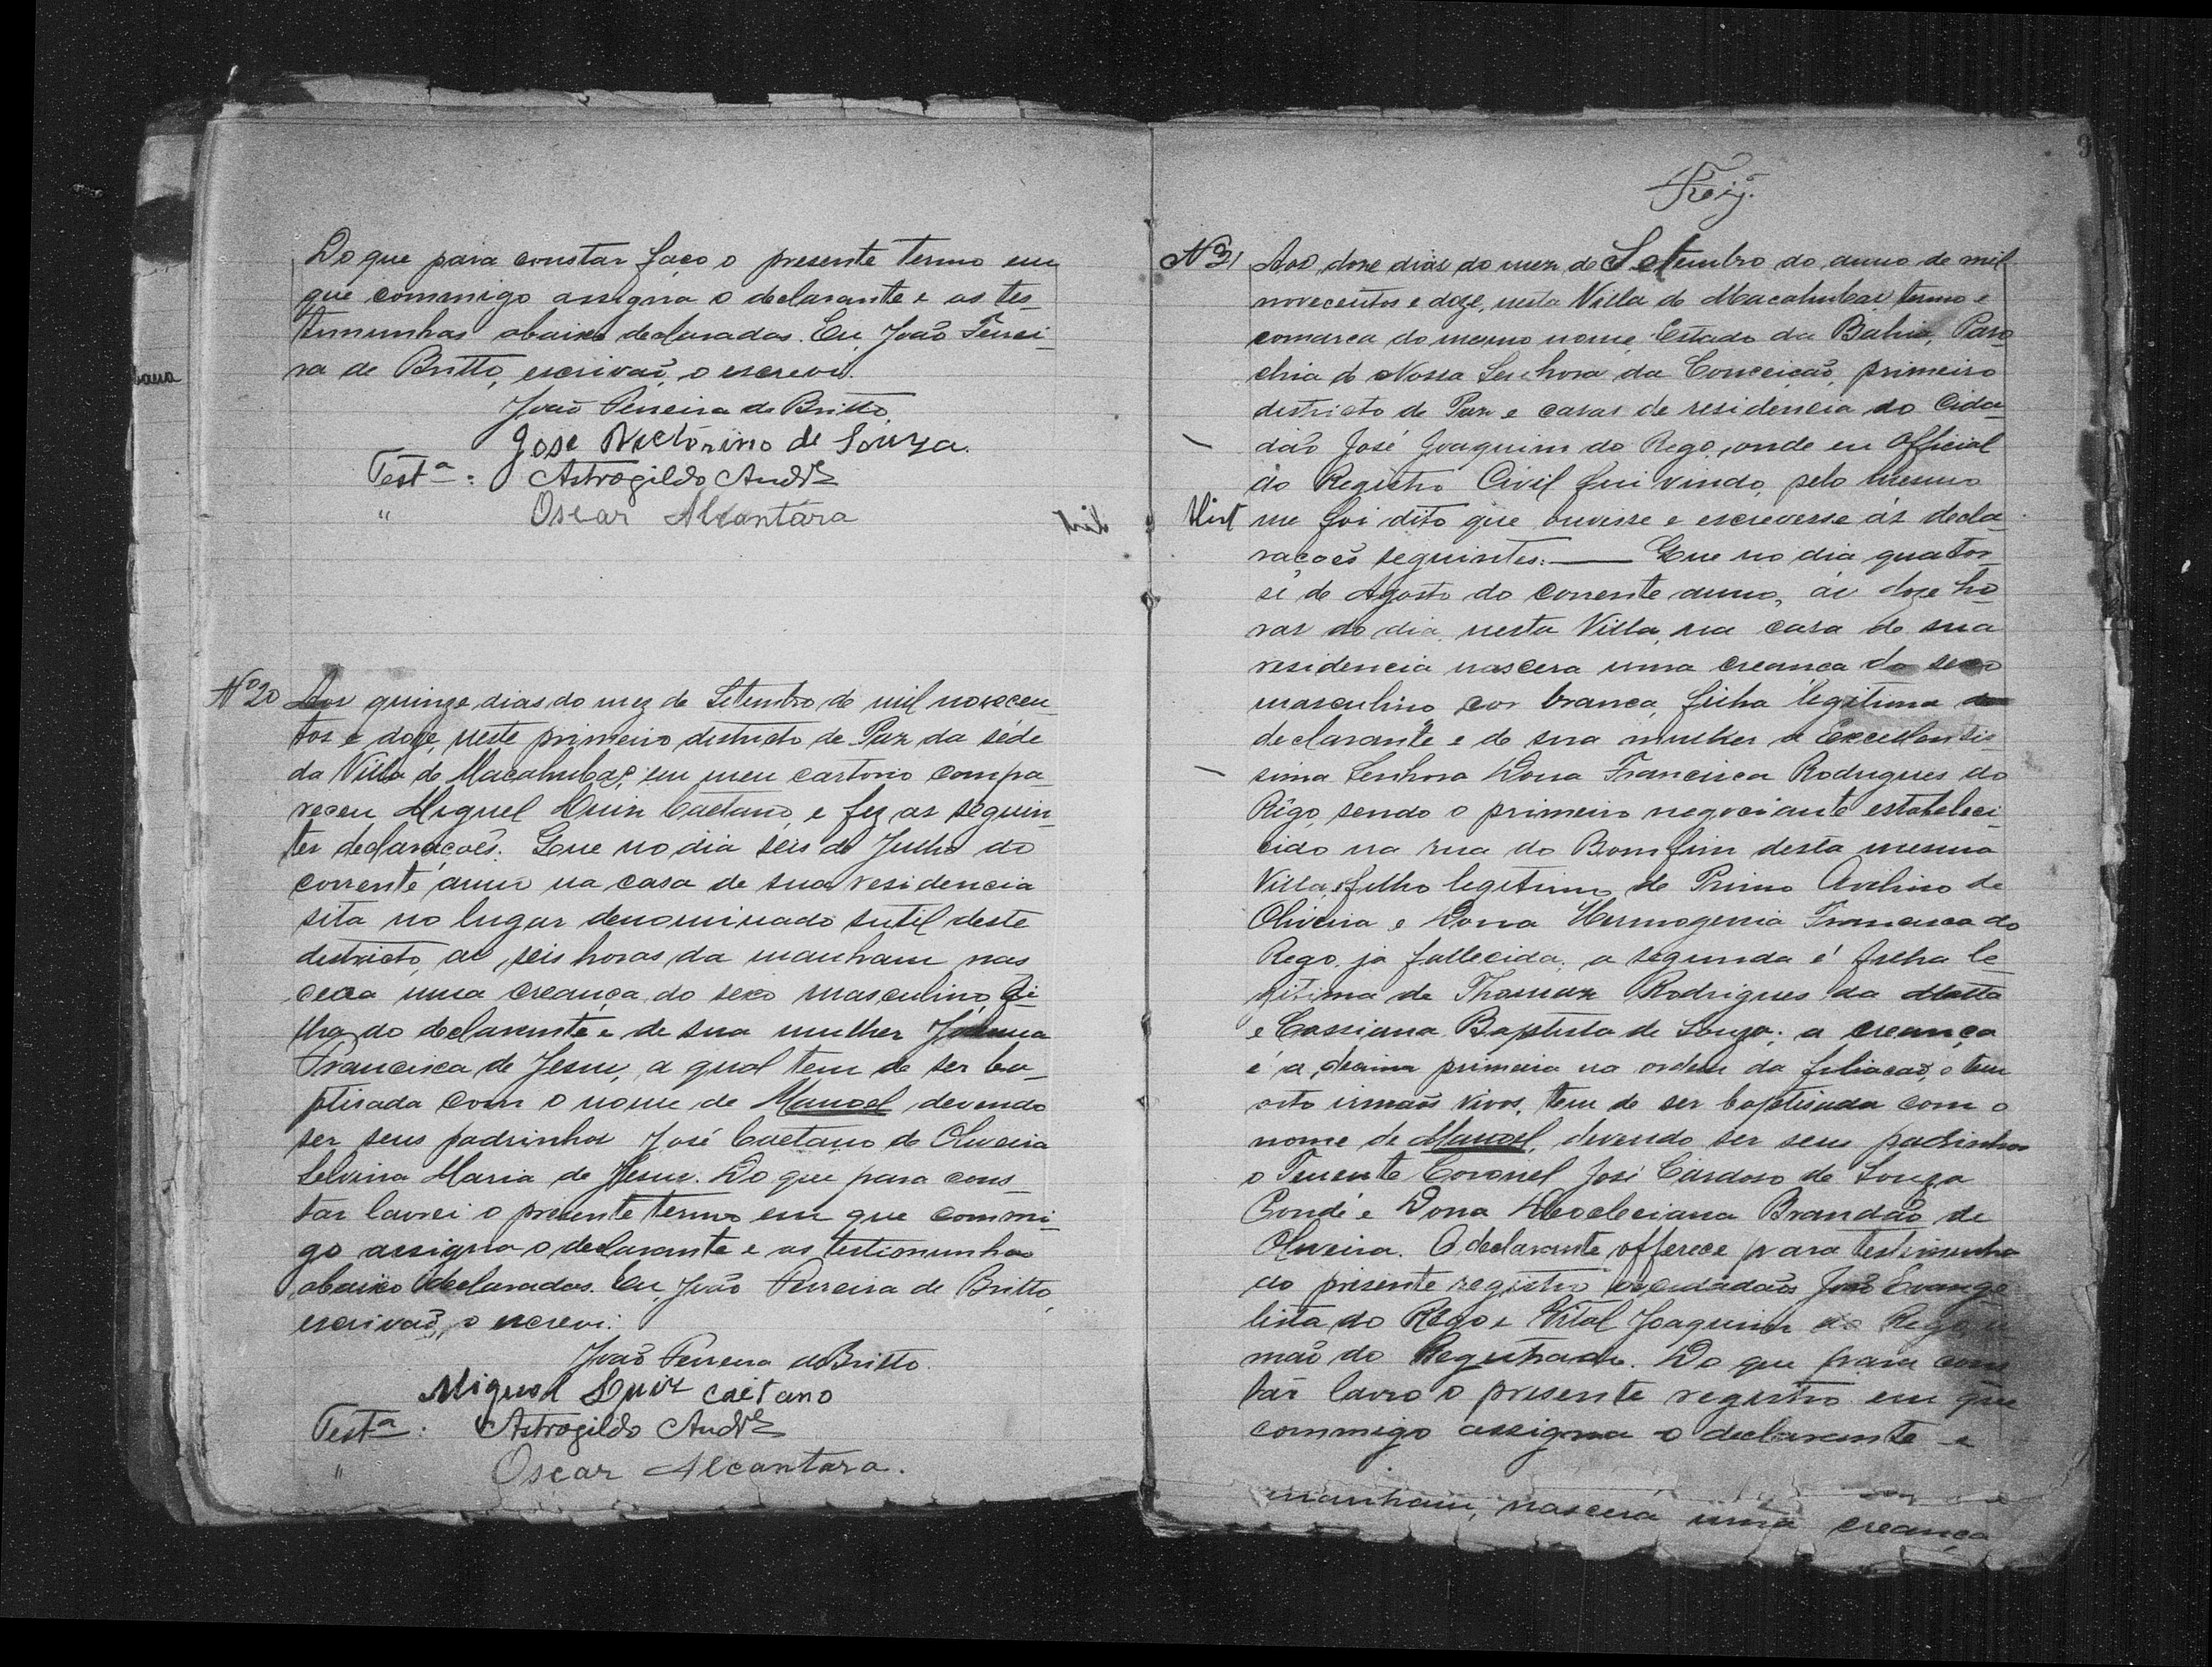 Do que para constar faço o presente termo em
que commigo assigna o declarante e as tes-
temunhas abaixo declaradas. Eu, João Ferrei-
ra de Britto, escrivaõ, o escrevi.
João Ferreira de Britto
José Victorino de Souza.
Testª: Astrogildo Andr.e
" Oscar Alcantara
Nº 20 Aos quinze dias do mez de Setembro de mil novecen-
tos e doze, neste primeiro destricto de Paz da séde
da Villa de Macahubas, em meu cartorio compa-
receu Miguel Luiz Caetano, e fez as seguin-
tes declaraçoẽs: Que no dia seis de Julho do
corrente anno na casa de sua residencia
sita no lugar denominado sutil deste
destricto, as seis horas da manham nas
cera uma creança do sexo masculino, fi-
lha do declarante e de sua mulher
Francisca de Jesus, a qual tem de ser ba-
ptisada com o nome de Manoel devendo
ser seus padrinhos José Caetano de Oliveira
Selvina Maria de Jesus. Do que para cons-
tar lavrei o presente termo em que commi-
go assigna o declarante e as testimunhas
abaixo declaradas. Eu, João Ferreira de Britto,
escrivaõ, o escrevi.
João Ferreira de Britto.
Miguel Luiz Caetano
Testª: Astrogildo Andr.e
" Oscar Alcantara.
9
Nº 21 Aos doze dias do mez de Setembro do anno de mil
novecentos e doze, nesta Villa de Macahubas, termo e
comarca do mesmo nome, Estado da Bahia, Paro
chia de Nossa Senhora da Conceição, primeiro
districto de Paz e casas de residencia do Cida-
dão José Joaquim do Rego, onde eu Official
do Registro Civil fui vindo, pelo mesmo
me foi dito que ouvisse e escrevesse ás decla-
racoẽs seguintes: — Que no dia quator-
se de Agosto do corrente anno, ás doze ho-
ras do dia, nesta Villa, na casa de sua
residencia nascera uma creanca do sexo
masculino cor branca, filha legitima do
declarante e de sua mulher a Excellentis-
sima Senhora Dona Francisca Rodrigues do
Rego, sendo o primeiro negociante estabeleci-
cido na rua do Bomfim desta mesma
Villa, filho legitimo de Primo Avelino de
Oliveira e Dona Hermogenia Francisca do
Rego, já fallecida; a segunda é filha le-
gitima de Thomaz Rodrigues da Matta
e Cassiana Baptista de Souza; a creança
é a decima primeira na ordem da filiacaõ, e tem
oito irmaõs vivos, tem de ser baptisada com o
nome de Manoel, devendo ser seus padrinhos
o Tenente Coronel José Cardoso de Souza
Condé e Dona Deocleciana Brandão de
Oliveira. O declarante offerece para testimunha
do presente registro os cidadaõs João Evange
lista do Rego e Vital Joaquim do Rego, ir
maõ do Registrado. Do que para cons
tar lavro o presente registro em que
commigo assigna o declarante e
manham, nascera uma creança